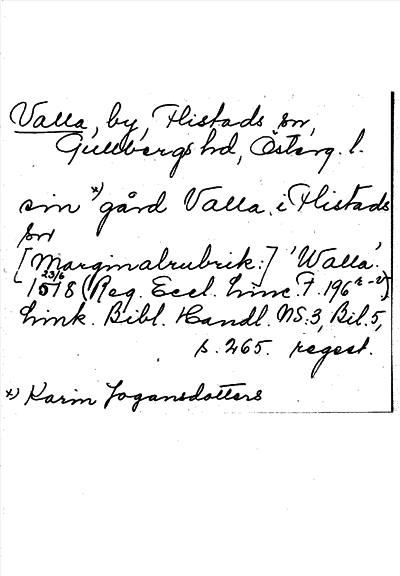 Valla, by, Flistads sn,
Gullbergs hd, Österg. l.
sin *) gård Valla i Flistads
sn
[Marginalrubrik:] 'Walla'.
23/6
1518 (Reg. Eccl. Linc F. 196 r-v)
Link. Bibl. Handl. NS:3, Bil. 5,
s. 265. regest.
*) Karin Jogansdotters